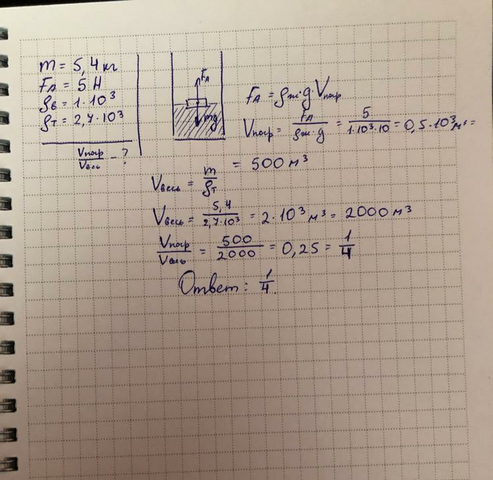 m = 5,4 кг
FА = 5 Н
ρв = 1·10³
ρт = 2,7·10³
Vпогр/Vвесь - ?
FА
mg
FА = ρж·g·Vпогр
Vпогр = FА/ρж·g = 5/1·10³·10 = 0,5·10³ м³ =
= 500 м³
Vвесь = m/ρт
Vвесь = 5,4/2,7·10³ = 2·10³ м³ = 2000 м³
Vпогр/Vвесь = 500/2000 = 0,25 = 1/4
Ответ: 1/4.